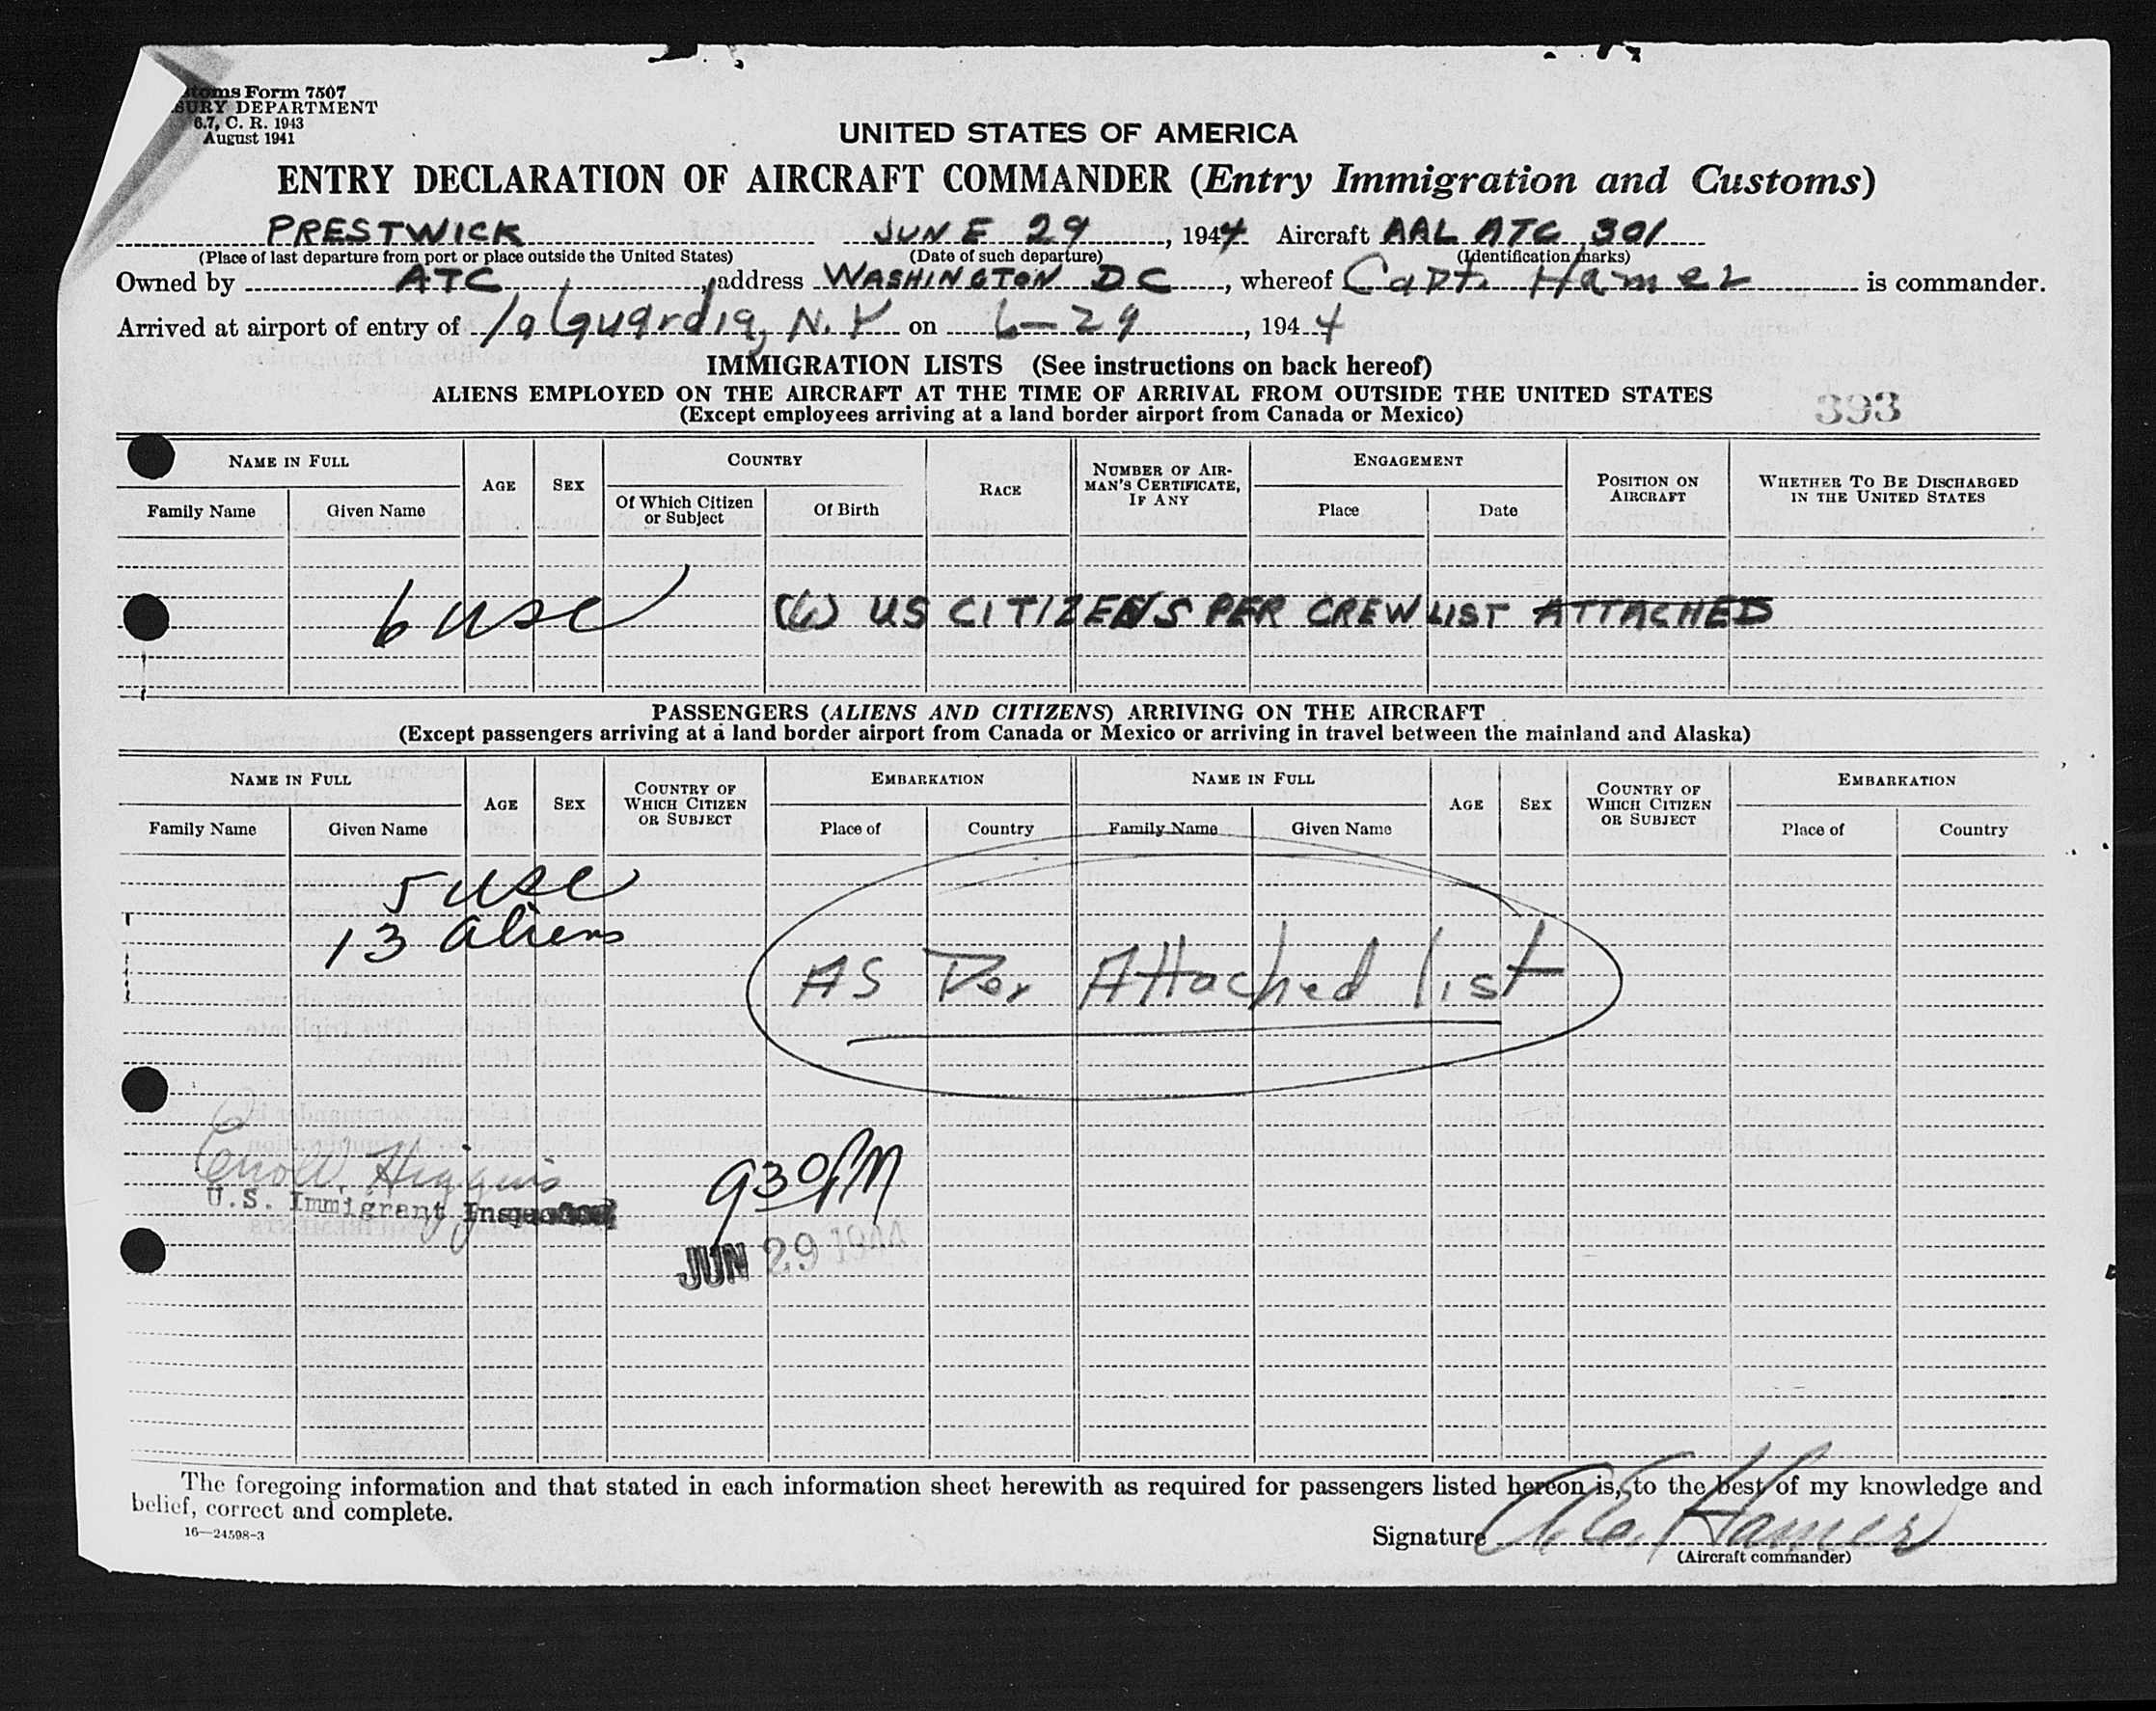 toms Form 7507
SURY DEPARTMENT
6.7, C. R. 1943
August 1941
UNITED STATES OF AMERICA
ENTRY DECLARATION OF AIRCRAFT COMMANDER (Entry Immigration and Customs)
PRESTWICK JUNE 29, 1944 Aircraft AAL ATC 301
(Place of last departure from port or place outside the United States) (Date of such departure) (Identification marks)
Owned by ATC, address WASHINGTON DC, whereof Capt. Hamer is commander.
Arrived at airport of entry of laGuardia, N.Y on 6-29, 1944
IMMIGRATION LISTS (See instructions on back hereof)
ALIENS EMPLOYED ON THE AIRCRAFT AT THE TIME OF ARRIVAL FROM OUTSIDE THE UNITED STATES
(Except employees arriving at a land border airport from Canada or Mexico)
393
NAME IN FULL AGE SEX COUNTRY RACE NUMBER OF AIRMAN'S CERTIFICATE, IF ANY ENGAGEMENT POSITION ON AIRCRAFT WHETHER TO BE DISCHARGED IN THE UNITED STATES
Family Name Given Name Of Which Citizen or Subject Of Birth Place Date
6 USC (6) US CITIZENS PER CREW LIST ATTACHED
PASSENGERS (ALIENS AND CITIZENS) ARRIVING ON THE AIRCRAFT
(Except passengers arriving at a land border airport from Canada or Mexico or arriving in travel between the mainland and Alaska)
NAME IN FULL AGE SEX COUNTRY OF WHICH CITIZEN OR SUBJECT EMBARKATION NAME IN FULL AGE SEX COUNTRY OF WHICH CITIZEN OR SUBJECT EMBARKATION
Family Name Given Name Place of Country Family Name Given Name Place of Country
5 USC
13 aliens
AS Per Attached list
Higgins
U.S. Immigrant Inspector
930PM
JUN 29 1944
The foregoing information and that stated in each information sheet herewith as required for passengers listed hereon is, to the best of my knowledge and
belief, correct and complete.
16—24598-3
Signature Hamer
(Aircraft commander)